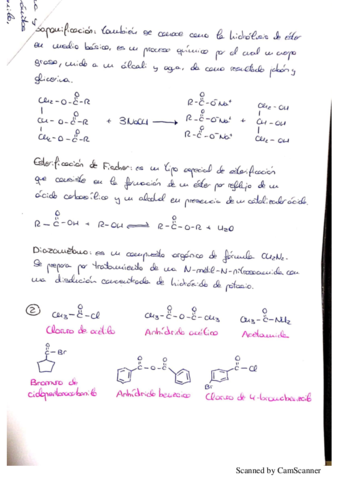 Saponificación: También se conoce como la hidrólisis de éster
en medio básico, es un proceso químico por el cual un cuerpo
graso, unido a un álcali y agua, da como resultado jabón y
glicerina.
CH₂-O-C-R
CH-O-C-R + 3NaOH → R-C-O⁻Na⁺ + CH-OH
CH₂-O-C-R
Esterificación de Fischer: es un tipo especial de esterificación
que consiste en la formación de un éster por reflujo de un
ácido carboxílico y un alcohol en presencia de un catalizador ácido.
R-C-OH + R-OH ⇌ R-C-O-R + H₂O
Diazometano: es un compuesto orgánico de fórmula CH₂N₂.
Se prepara por tratamiento de una N-metil-N-nitrosoamida con
una disolución concentrada de hidróxido de potasio.
② CH₃-C-Cl CH₃-C-O-C-CH₃ CH₃-C-NH₂
Cloruro de acetilo Anhídrido acético Acetamida
C-Br C-O-C C-Cl
Br
Bromuro de
ciclopentanocarbonilo Anhídrido benzoico Cloruro de 4-bromobenzoilo
Scanned by CamScanner